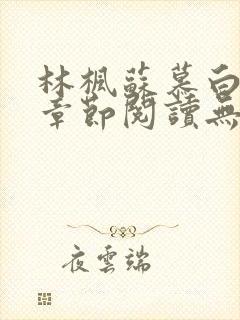 林楓蘇慕白
章節閱讀無
夜雲端